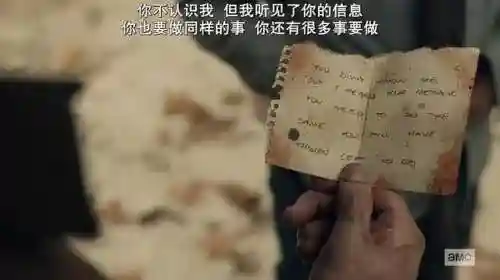 你不认识我 但我听见了你的信息
你也要做同样的事 你还有很多事要做
YOU DON'T KNOW ME
BUT I HEARD YOUR MESSAGE
YOU NEED TO DO THE
SAME YOU STILL HAVE
THINGS LEFT TO DO
amc